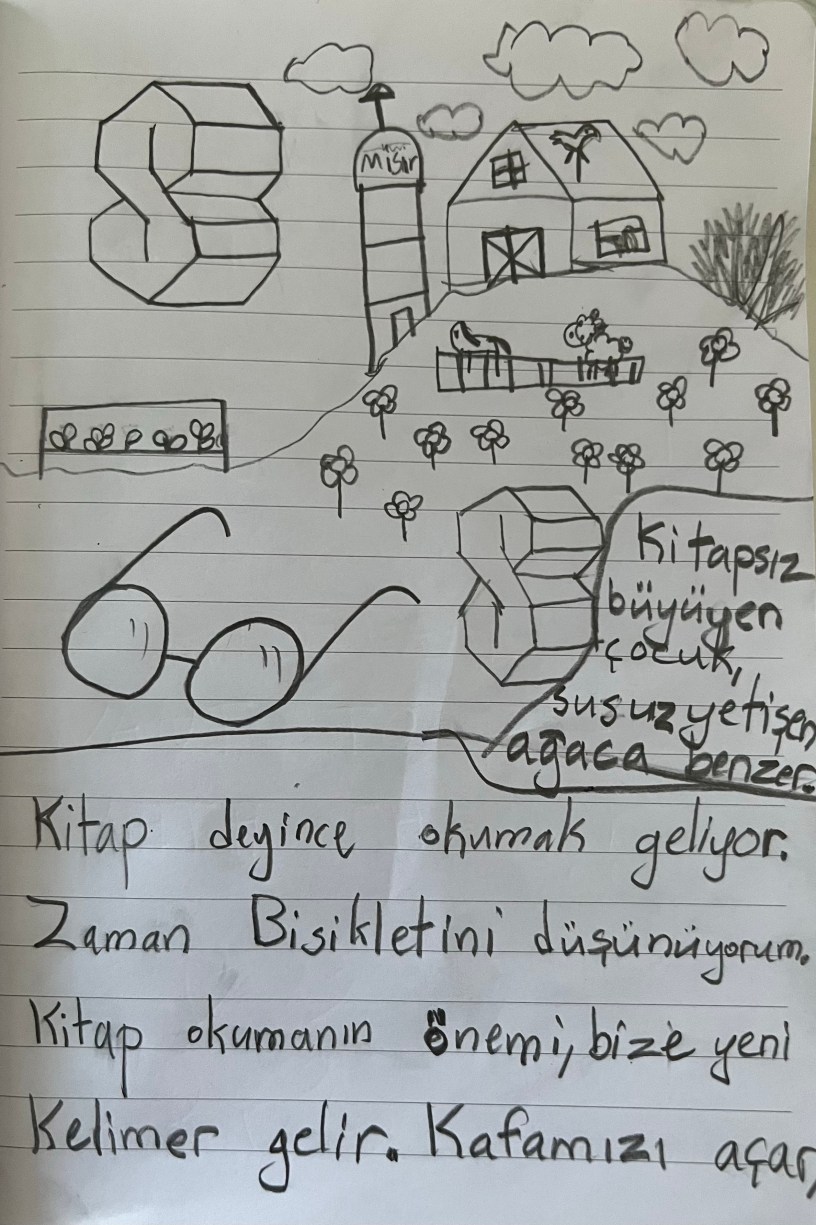 Mısır
Kitapsız
büyüyen
çocuk,
susuz yetişen
ağaca benzer.
Kitap deyince okumak geliyor.
Zaman Bisikletini düşünüyorum.
Kitap okumanın önemi, bize yeni
Kelimer gelir. Kafamızı açar,